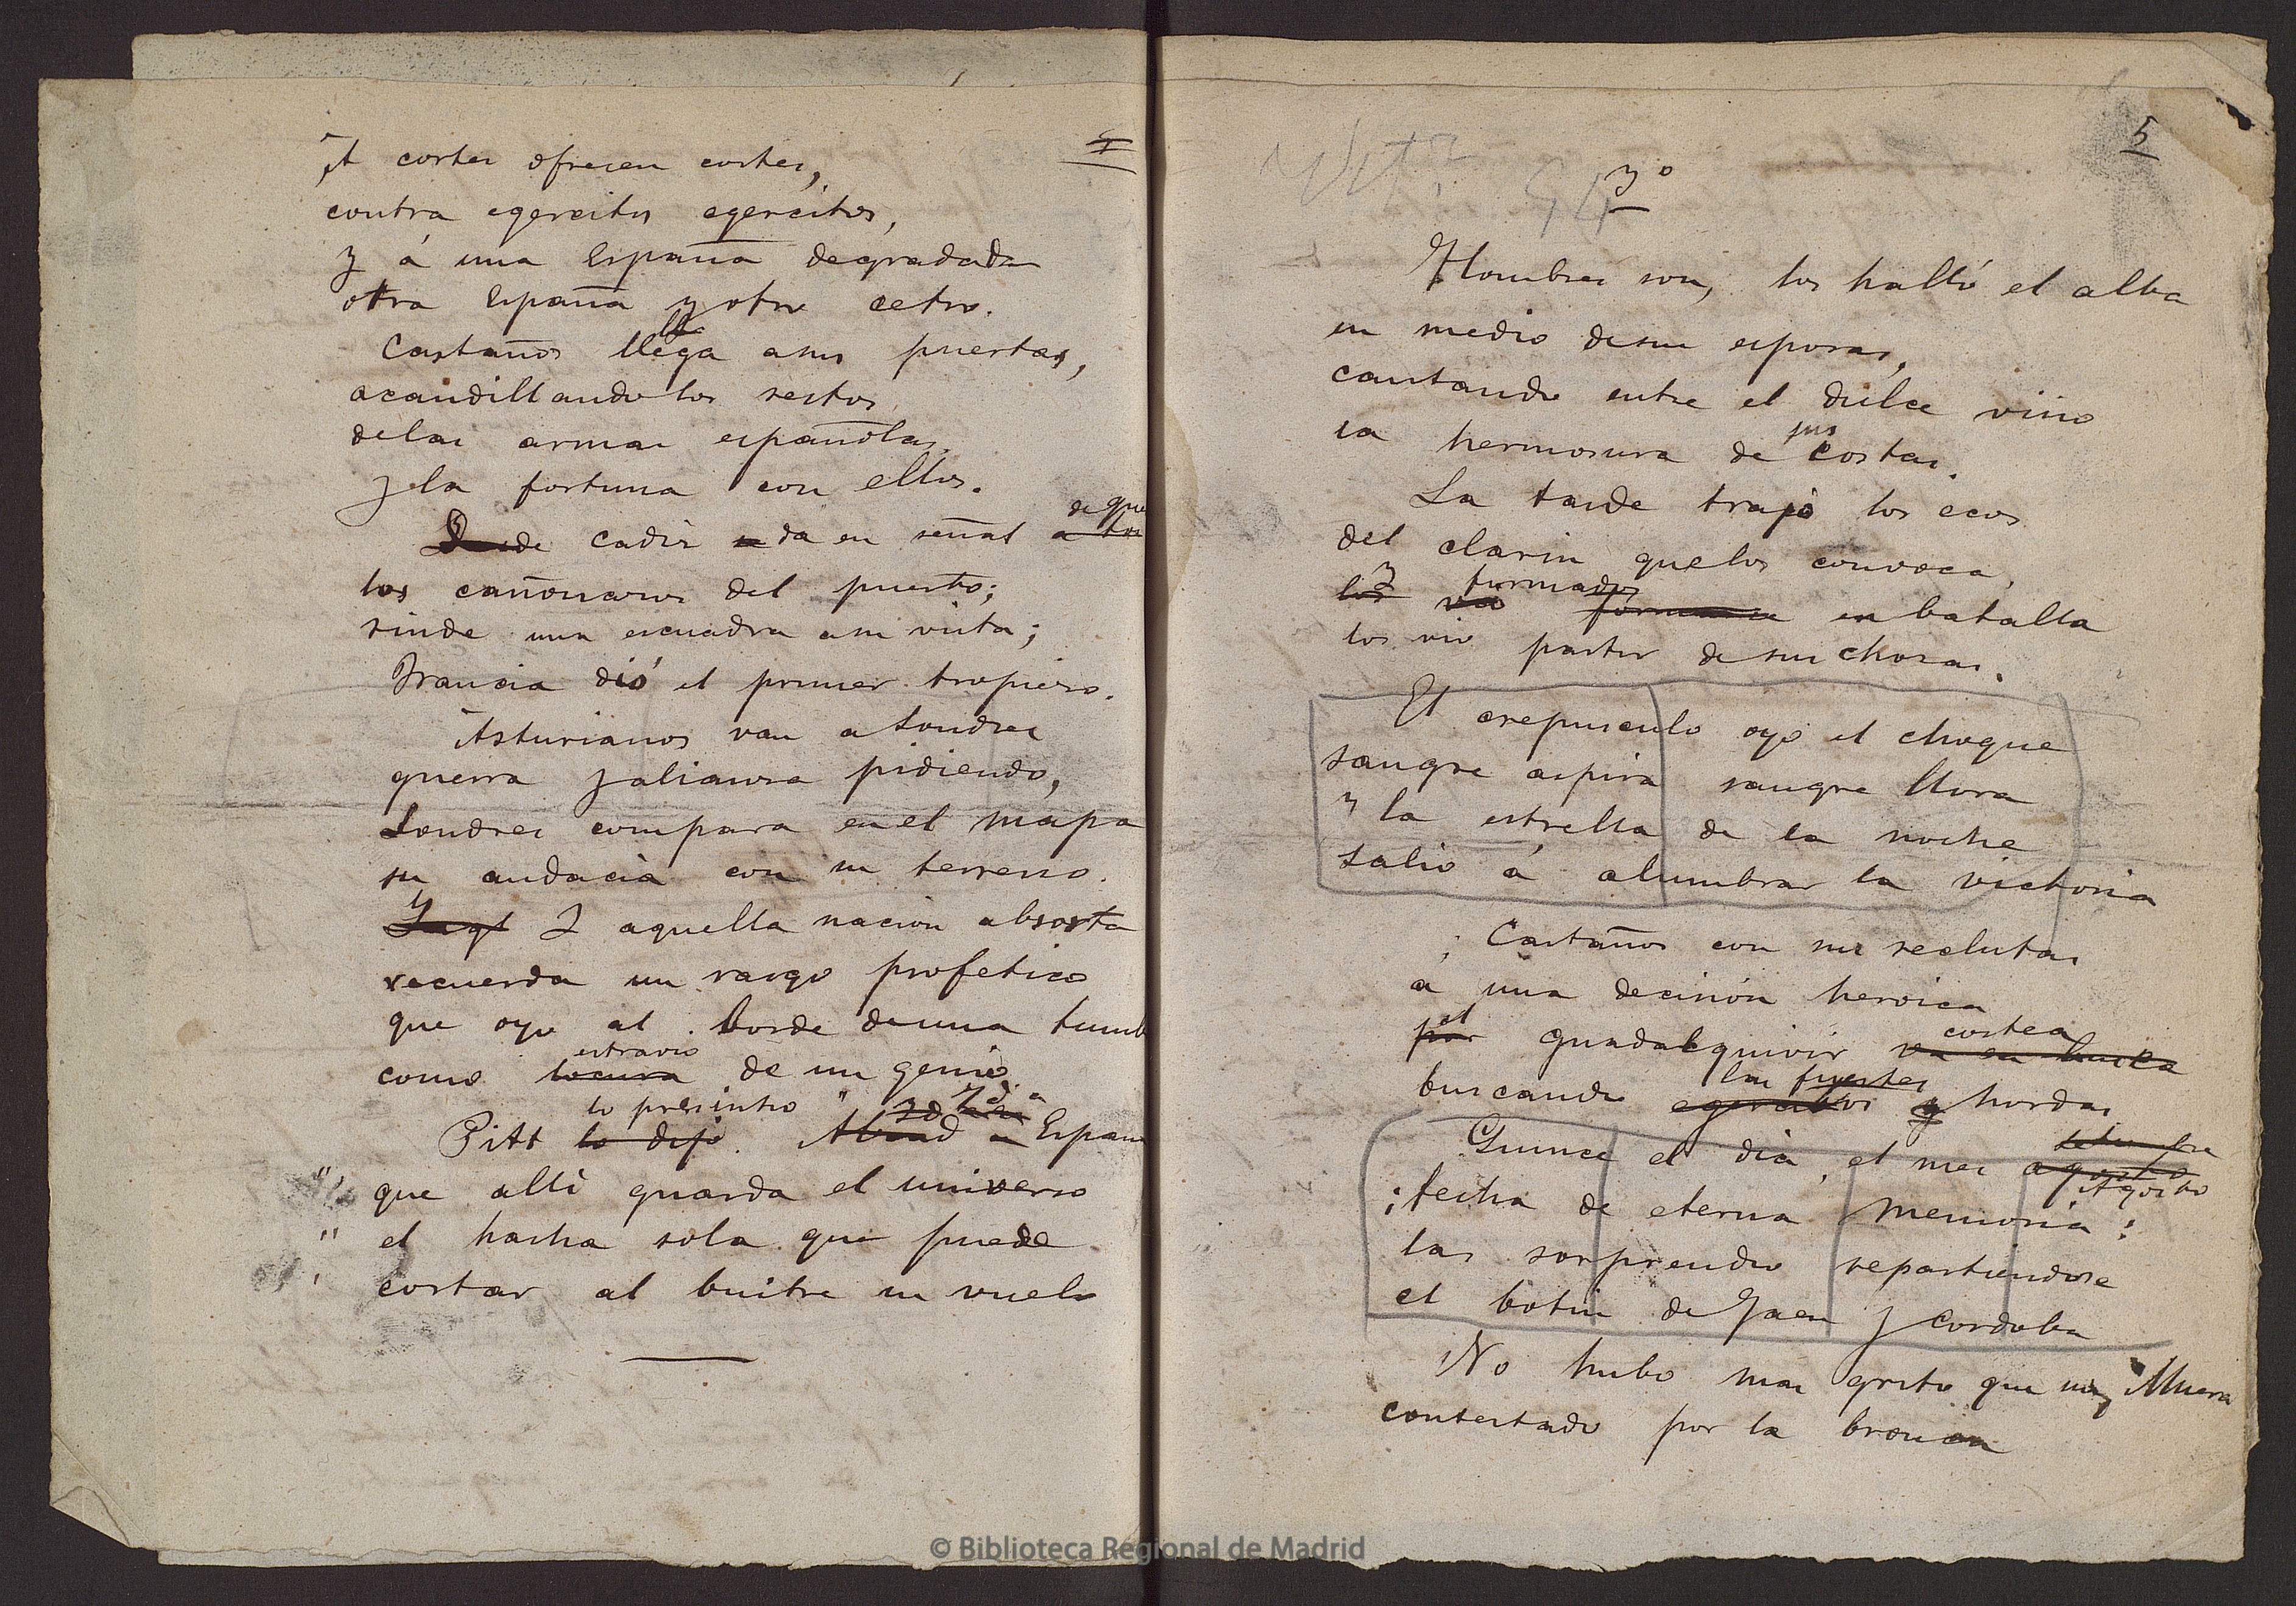 A cortes ofrecen cortes,
contra egercitos egercitos,
y á una España degradada
otra España y otro cetro.
Castaños llega asus puertas,
acaudillando los restos
delas armas españolas,
y la fortuna con ellos.
de que
Desde Cadiz da en señal a los
los cañonazos del puerto;
rinde una escuadra asu vista;
Francia dió el primer tropiezo.
Asturianos van a Londres
guerra y alianza pidiendo,
Londres compara en el mapa
su audacia con su terreno.
Y aquella nacion absorta
recuerda un rasgo profetico
que oyo al borde deuna tumb
estravio
como locura de un genio.
lo presintio
Pitt lo dijo. España
" que alli guarda el universo
" el hacha sola que puede
cortar al buitre su vuelo
5
3º
Hombres son, los halló el alba
en medio desus esposas,
cantando entre el dulce vino
la hermosura de sus costas.
La tarde trajo los ecos
del clarin quelos convoca,
y formados
los vio formarse en batalla
los vio partir de sus chozas.
El crepusculo oyo el choque
sangre aspira sangre llora
y la estrella de la noche
salio á alumbrar la victoria
Castaños con sus reclutas
a una decisión heroica
el costea
por guadalquivir va en busca
las fuertes
buscando egercitos y hordas
Quince el dia, el mes agosto
Agosto
¡fecha de eterna memoria!
las sorprendio repartiendose
el botin de Jaen y Cordoba
No hubo mas grito que un, Muera
contestado por la bronca
© Biblioteca Regional de Madrid